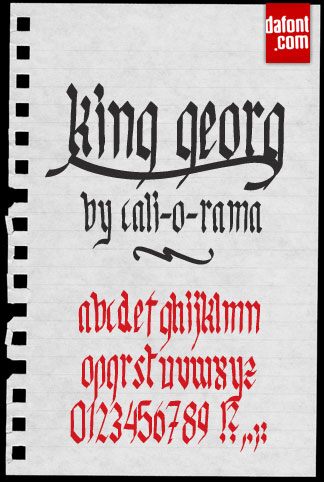 dafont
.com
king georg
by cali-o-rama
abcdefghijklmn
opqrstuvwxyz
0123456789 !?,.:;